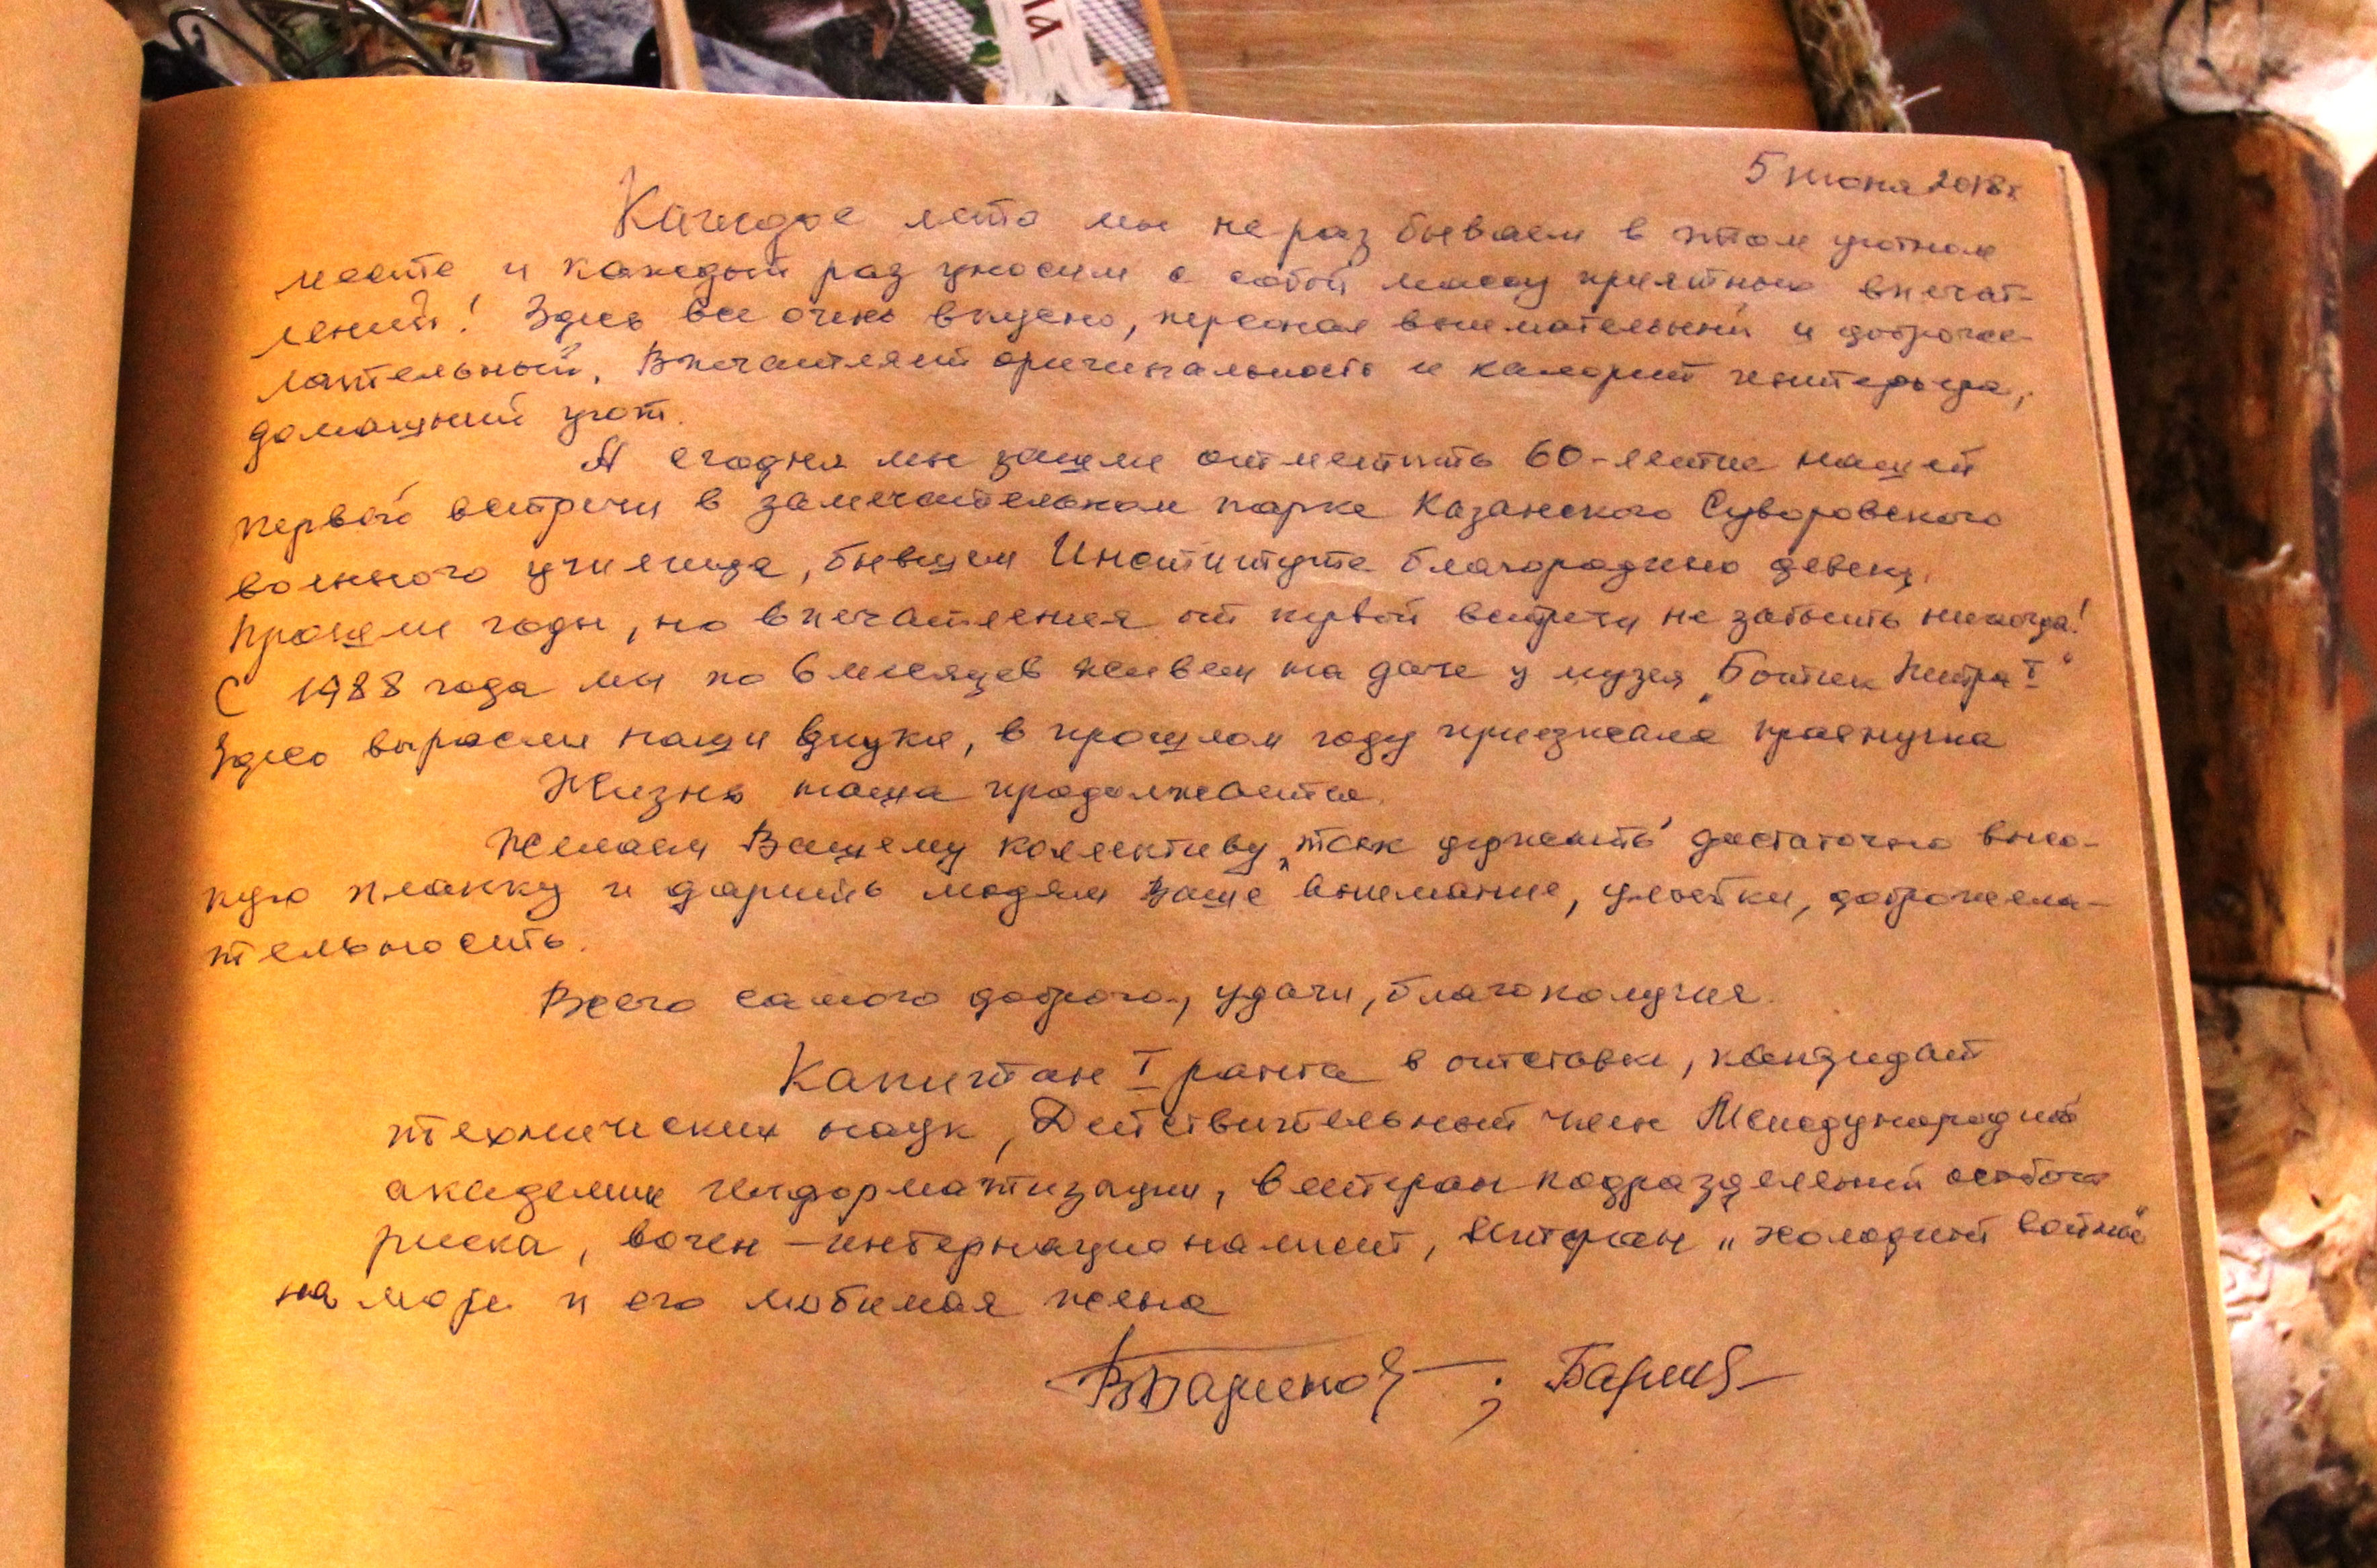 5 июня 2018г
Каждое лето мы не раз бываем в этом уютном
месте и каждый раз уносим с собой массу приятных впечат-
лений! Здесь все очень вкусно, персонал внимательный и доброже-
лательный. Впечатляет оригинальность и колорит интерьера,
домашний уют.
А сегодня мы зашли отметить 60-летие нашей
первой встречи в замечательном парке Казанского Суворовского
военного училища, бывшем Институте благородных девиц.
Прошли годы, но впечатления от первой встречи не забыть никогда!
С 1988 года мы по 6 месяцев живем на даче у музея "Ботик Петра I"
Здесь выросли наши внуки, в прошлом году приезжала правнучка
Жизнь наша продолжается.
Желаем Вашему коллективу "так держать" достаточно высо-
кую планку и дарить людям Ваше внимание, улыбки, доброжела-
тельность.
Всего самого доброго, удачи, благополучия.
Капитан I ранга в отставке, кандидат
технических наук, Действительный член Международной
академии информатизации, ветеран подразделений особого
риска, воин-интернационалист, ветеран "холодной войны"
на море и его любимая жена